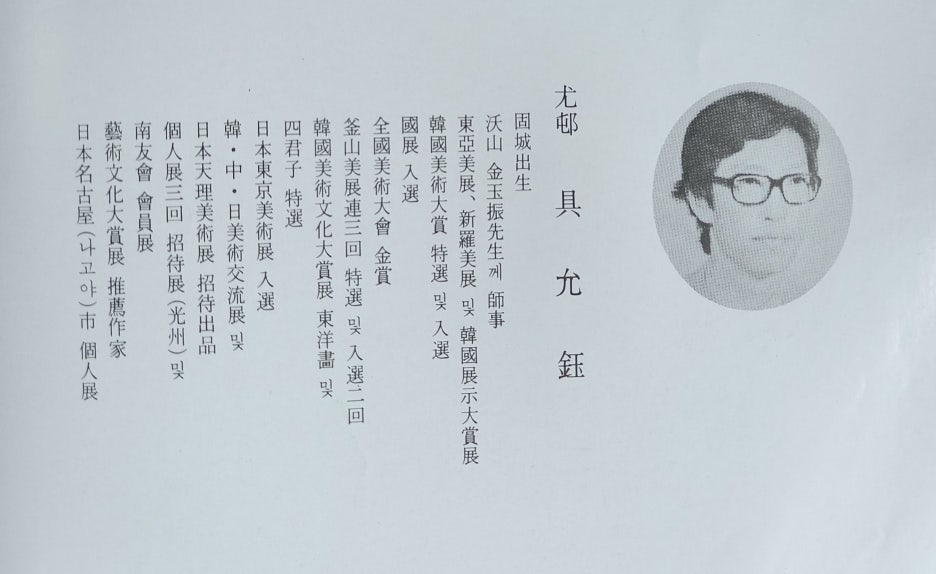 尤邨 具允鈺
固城出生
沃山 金玉振先生께 師事
東亞美展、新羅美展 및 韓國展示大賞展
韓國美術大賞 特選 및 入選
國展 入選
全國美術大會 金賞
釜山美展連三回 特選 및 入選二回
韓國美術文化大賞展 東洋畵 및
四君子 特選
日本東京美術展 入選
韓・中・日美術交流展 및
日本天理美術展 招待出品
個人展三回 招待展(光州) 및
南友會 會員展
藝術文化大賞展 推薦作家
日本名古屋(나고야)市 個人展